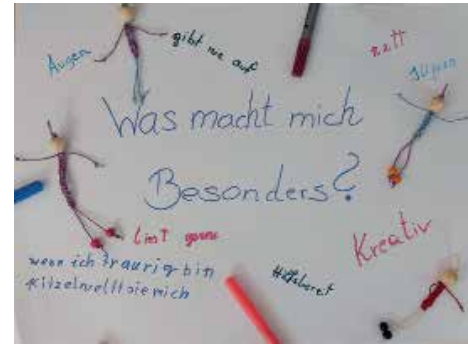 Augen
gibt nie auf
nett
Was macht mich
Besonders?
liest gerne
Kreativ
wenn ich traurig bin
kitzelnellt sie mich
Hilfsbereit